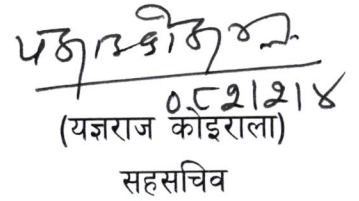 ०८२।२।४
(यज्ञराज कोइराला)
सहसचिव